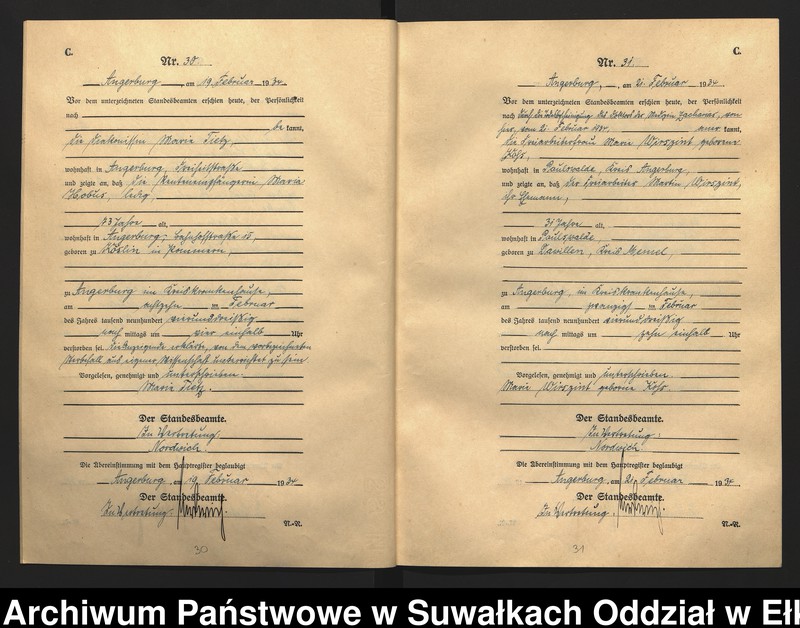 C.
Nr. 30.
Angerburg, am 19. Februar 1934.
Vor dem unterzeichneten Standesbeamten erschien heute, der Persönlichkeit
nach
be kannt,
die Diakonissin Maria Tietz,
wohnhaft in Angerburg, Freiheitstraße
und zeigte an, daß die Rentenempfängerin Maria
ledig,
73 Jahre alt,
wohnhaft in Angerburg, Bahnhofstraße 15,
geboren zu Köslin in Pommern,
zu Angerburg im Kreiskrankenhause,
am achtzehn ten Februar
des Jahres tausend neunhundert vierunddreißig
nach mittags um vier einhalb Uhr
verstorben sei. Die Anzeigende erklärte, von dem vorbezeichneten
Sterbefall aus eigener Wissenschaft unterrichtet zu sein.
Vorgelesen, genehmigt und unterschrieben.
Maria Tietz.
Der Standesbeamte.
In Vertretung.
Die Übereinstimmung mit dem Hauptregister beglaubigt
Angerburg, am 19. Februar 1934
Der Standesbeamte.
In Vertretung.
N.-N.
30
C.
Nr. 31.
Angerburg, am 21. Februar 1934.
Vor dem unterzeichneten Standesbeamten erschien heute, der Persönlichkeit
nach durch die des Doktors der Medizin Zacharias, von
hier, vom 21. Februar 1934. aner kannt,
die Freiarbeiterfrau Marie Wirszint geborene
wohnhaft in Paulswalde, Kreis Angerburg,
und zeigte an, daß der Freiarbeiter Martin Wirszint,
ihr Ehemann,
31 Jahre alt,
wohnhaft in Paulswalde,
geboren zu Kreis Memel,
zu Angerburg, im Kreiskrankenhause,
am zwanzig ten Februar
des Jahres tausend neunhundert vierunddreißig
nach mittags um zehn einhalb Uhr
verstorben sei.
Vorgelesen, genehmigt und unterschrieben.
Marie Wirszint geborene
Der Standesbeamte.
In Vertretung.
Die Übereinstimmung mit dem Hauptregister beglaubigt
Angerburg, am 21. Februar 1934.
Der Standesbeamte.
In Vertretung.
N.-N.
31
Archiwum Państwowe w Suwałkach Oddział w Ełk